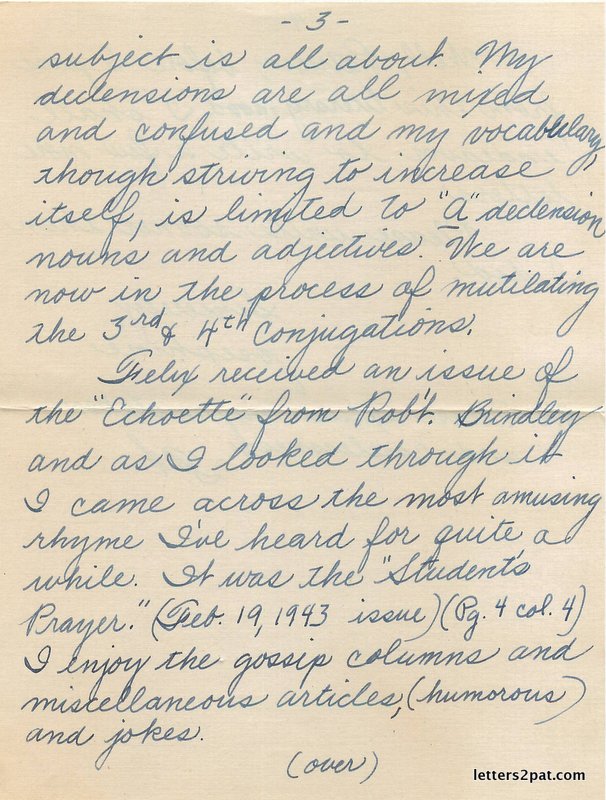 - 3 -
subject is all about. My
declensions are all mixed
and confused and my vocabulary,
though striving to increase
itself, is limited to "A" declension
nouns and adjectives. We are
now in the process of mutilating
the 3rd & 4th conjugations.
Felix received an issue of
the "Echoette" from Rob't. Brindley
and as I looked through it
I came across the most amusing
rhyme I've heard for quite a
while. It was the "Student's
Prayer." (Feb. 19, 1943 issue) (Pg. 4 col. 4)
I enjoy the gossip columns and
miscellaneous articles, (humorous)
and jokes.
(over)
letters2pat.com